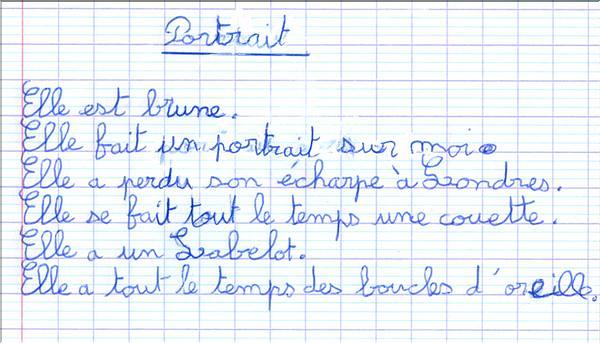 Portrait
Elle est brune.
Elle fait un portrait sur moi.
Elle a perdu son écharpe à Londres.
Elle se fait tout le temps une couette.
Elle a un Labelot.
Elle a tout le temps des boucles d'oreille.